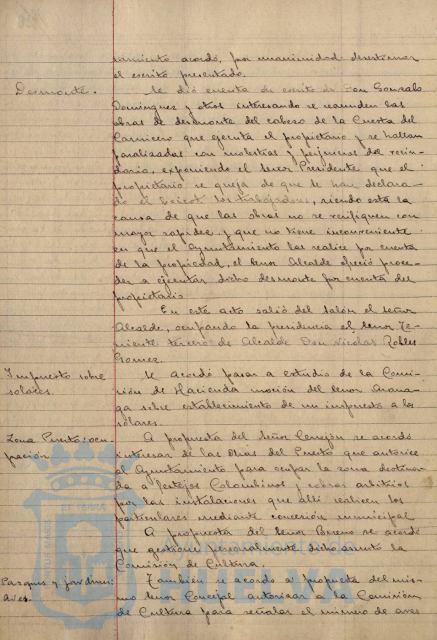 tamiento acordó, por unanimidad desestimar
el escrito presentado.
Desmonte.
Se dió cuenta de escrito de Don Gonzalo
Dominguez y otros interesando se reanuden las
obras de desmonte del cabezo de la Cuesta del
Carnicero que ejecuta el propietario y se hallan
paralizadas con molestias y perjuicios del vecin-
dario, exponiendo el Señor Presidente que el
propietario se queja de que le han declara-
do el boicot los trabajadores, siendo esta la
causa de que las obras no se verifiquen con
mayor rapidez y que no tiene inconveniente
en que el Ayuntamiento las realice por cuenta
de la propiedad, el Señor Alcalde ofreció proce-
der a ejecutar dicho desmonte por cuenta del
propietario
En este acto salió del Salón el Señor
Alcalde, ocupando la presidencia el Señor Te-
niente tercero de Alcalde Don Nicolas Robles
Gomez.
Impuesto sobre
solares.
Se acordó pasar a estudio de la Comi-
sión de Hacienda moción del Señor
sobre establecimiento de un impuesto a los
solares.
Zona Puerto: ocu-
pación
A propuesta del Señor Cerrejón se acordó
interesar de las Obras del Puerto que autorice
al Ayuntamiento para ocupar la zona destina-
da a festejos Colombinos y cobrar arbitrios
por las instalaciones que allí realicen los
particulares mediante concesión municipal
A propuesta del Señor Bueno se acordó
que gestione personalmente dicho asunto la
Comisión de Cultura.
Parques y jardines:
Aves.
Tambien se acordó a propuesta del mis-
mo Señor Concejal autorizar a la Comisión
de Cultura para señalar el número de aves